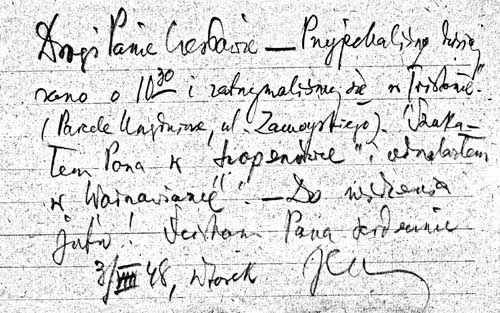 Drogi Panie Czesławie — Przyjechaliśmy dzisiaj
rano o 10³⁰ i zatrzymaliśmy się w "Tristanie"
(Parcele Urzędnicze, ul. Zamoyskiego). Szuka-
łem Pana w "Szopenówce" i odnalazłem
w "Warszawiance". — Do widzenia
jutro! Ściskam Pana serdecznie
3/VIII 48, wtorek